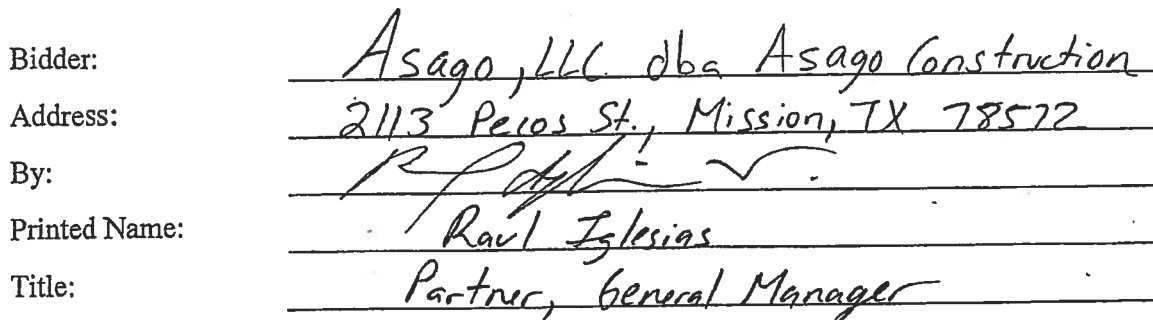 Bidder: Asago, LLC dba Asago Construction
Address: 2113 Pecos St., Mission, TX 78572
By:
Printed Name: Raul Iglesias
Title: Partner, General Manager